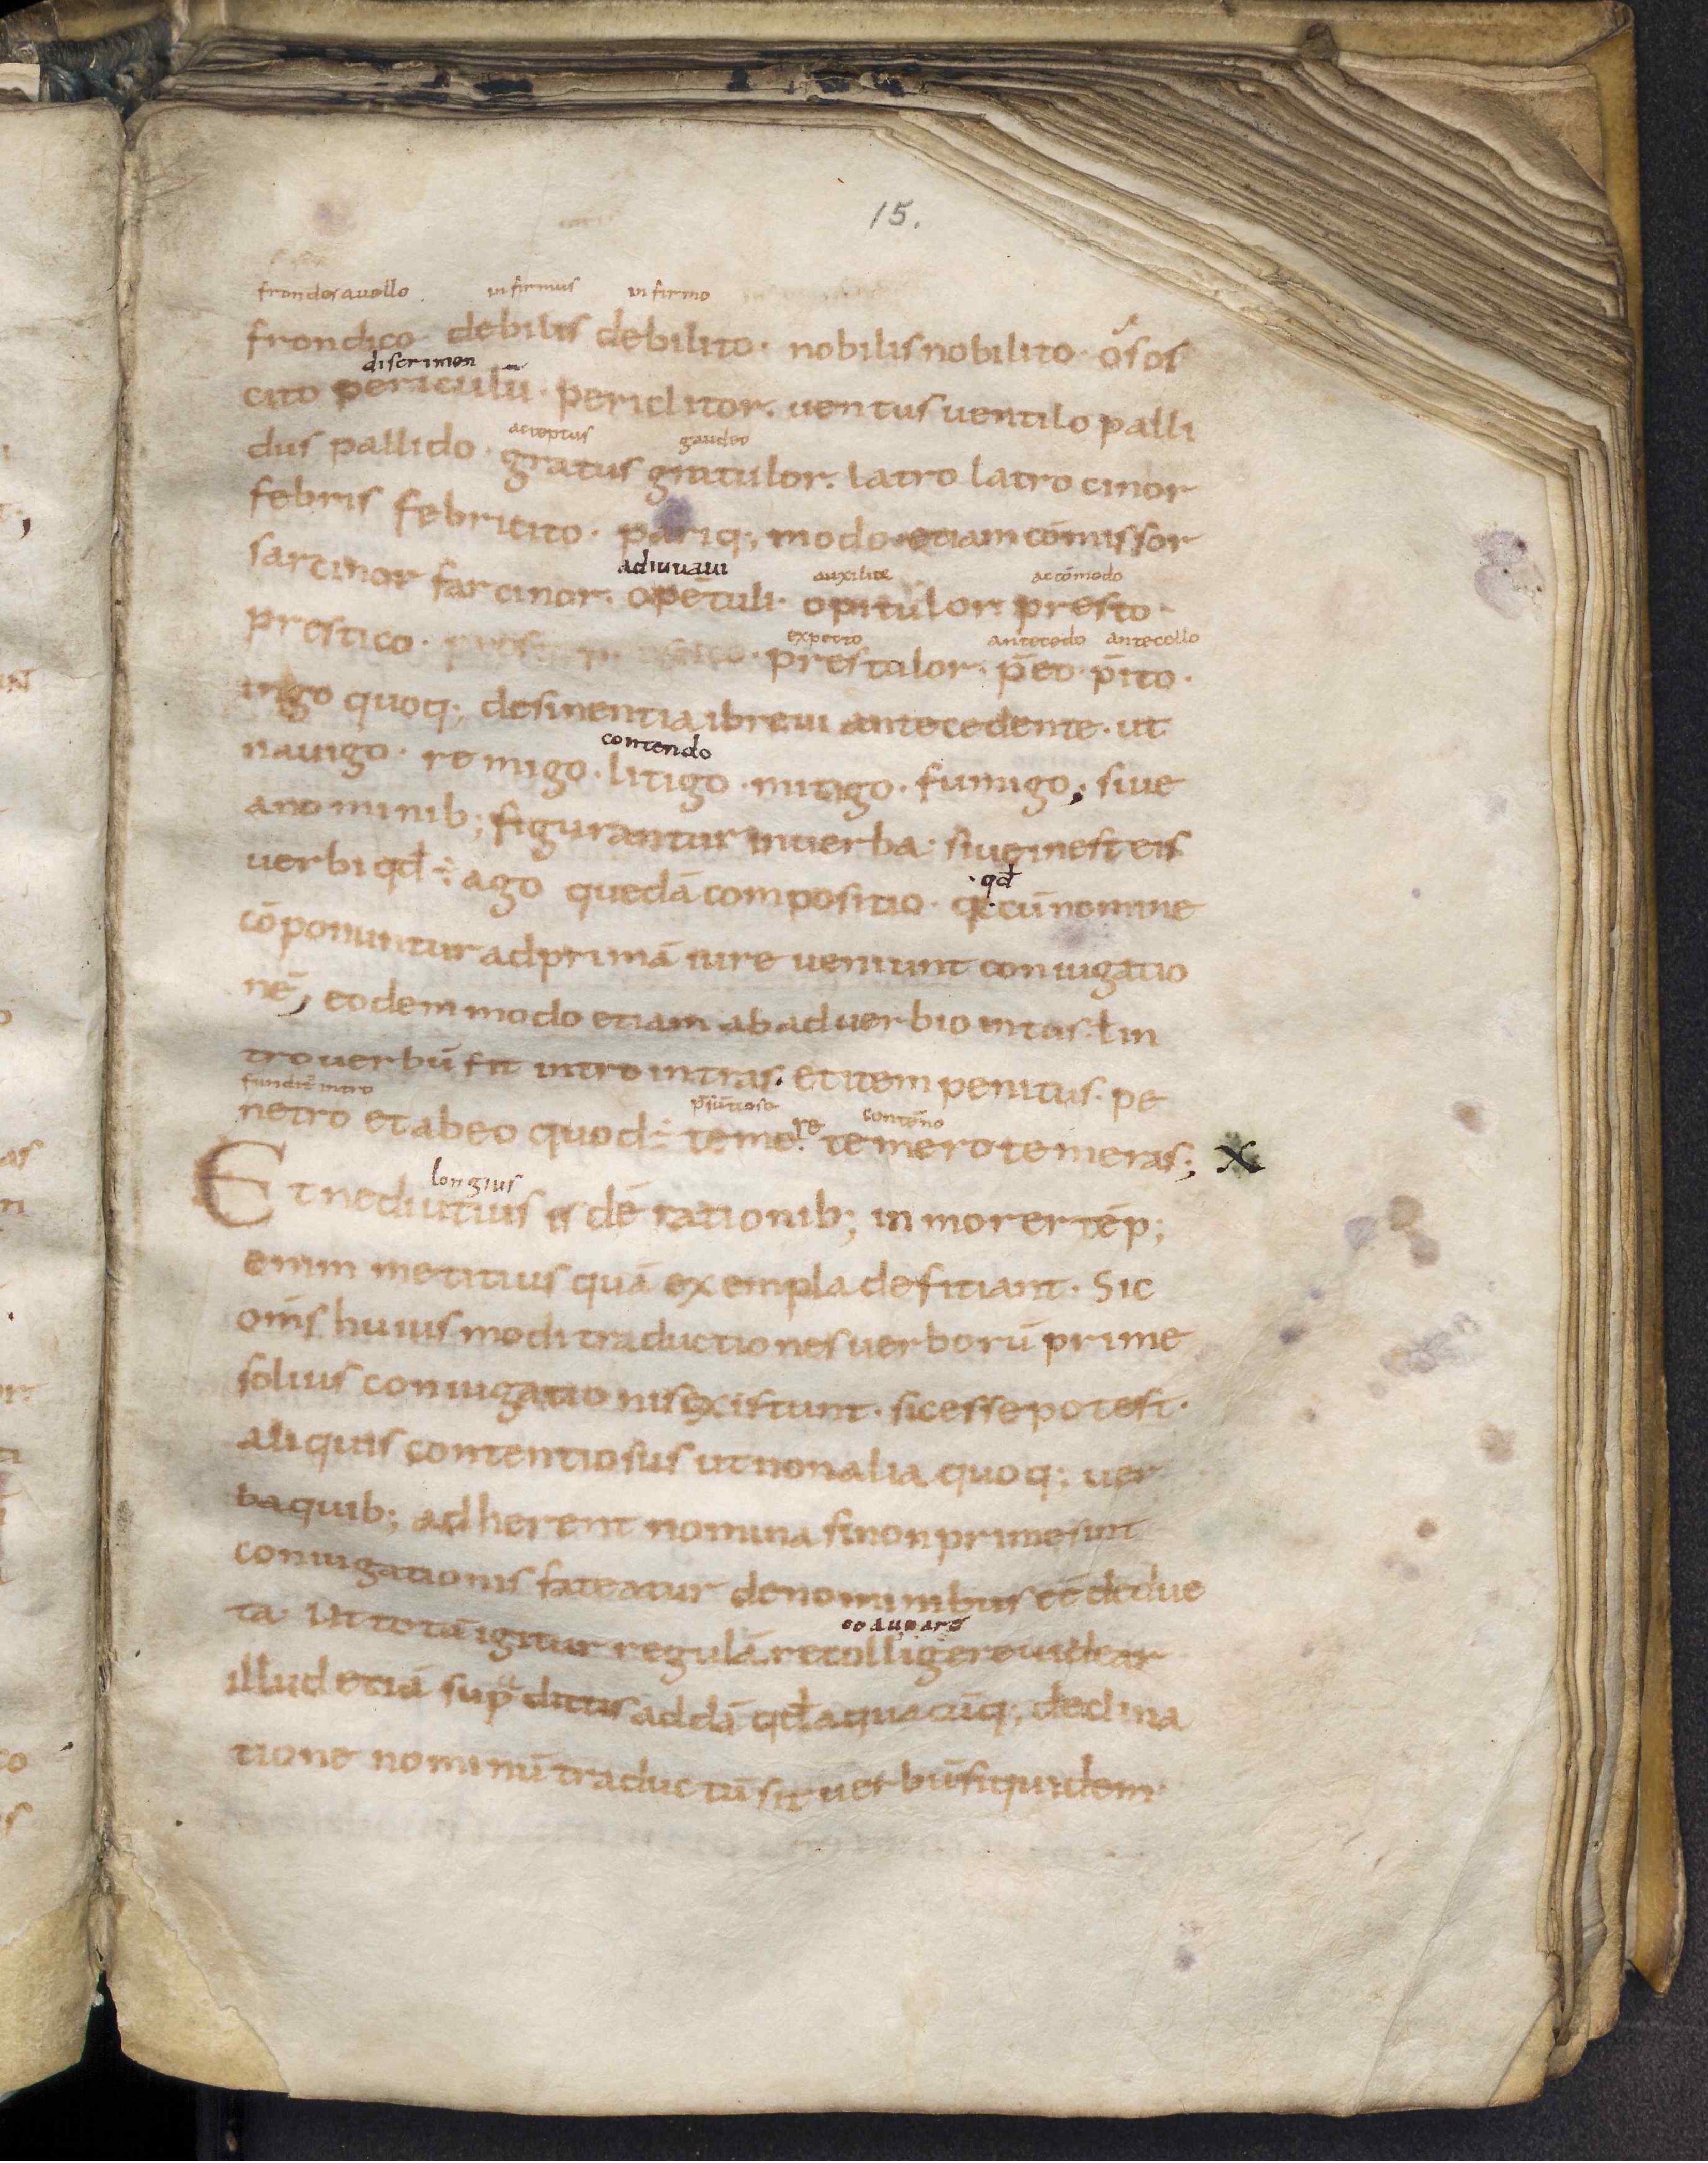 15.
frondes auello infirmus infirmo
frondico debilis debilito · nobilis nobilito · os os
discrimen
cito periculū · periclitor · uentus uentilo palli
acceptus gaudeo
dus pallido · gratus gratulor · latro latro cinor
febris febricito · pariq; modo etiam cōmissor
adiuuaui auxilior accōmodo
sarcinor farcinor · opē tuli · opitulor · presto ·
expecto antecedo antecello
prestico · prestolor · p̄eo · p̄ito ·
in go quoq; desinentia i breui antecedente · ut
contendo
nauigo · remigo · litigo · mitigo · fumigo; siue
a nominib; figurantur in uerba · siue inest eis
qđ
uerbi qđ ÷ ago quedā compositio · q cū nomine
cōponuntur ad primā iure ueniunt coniugatio
nē, eodem modo etiam ab aduerbio intus ł in
tro uerbū fit intro intras · et item penitus · pe
funditꝰ intro p̄sūtiose contēno
netro et ab eo quod ÷ temere temero temeras; X
longius
Et ne diutius isdē rationib; in morer tēp;
enim me titius quā exempla defitiant · Sic
om̄s huius modi traductiones uerborū prime
solius coniugationis existunt · sic esse potest ·
aliquis contentiosus ut non alia quoq; uer
ba quib; adherent nomina si non prime sint
coniugationis fateatur de nominibus eē deduc
coadunare
ta · Ut totā igitur regulā recolligere uidear
illud etiā sup̄ dictis addā qđ a quacūq; declina
tione nominū traductū sit uerbū siquidem